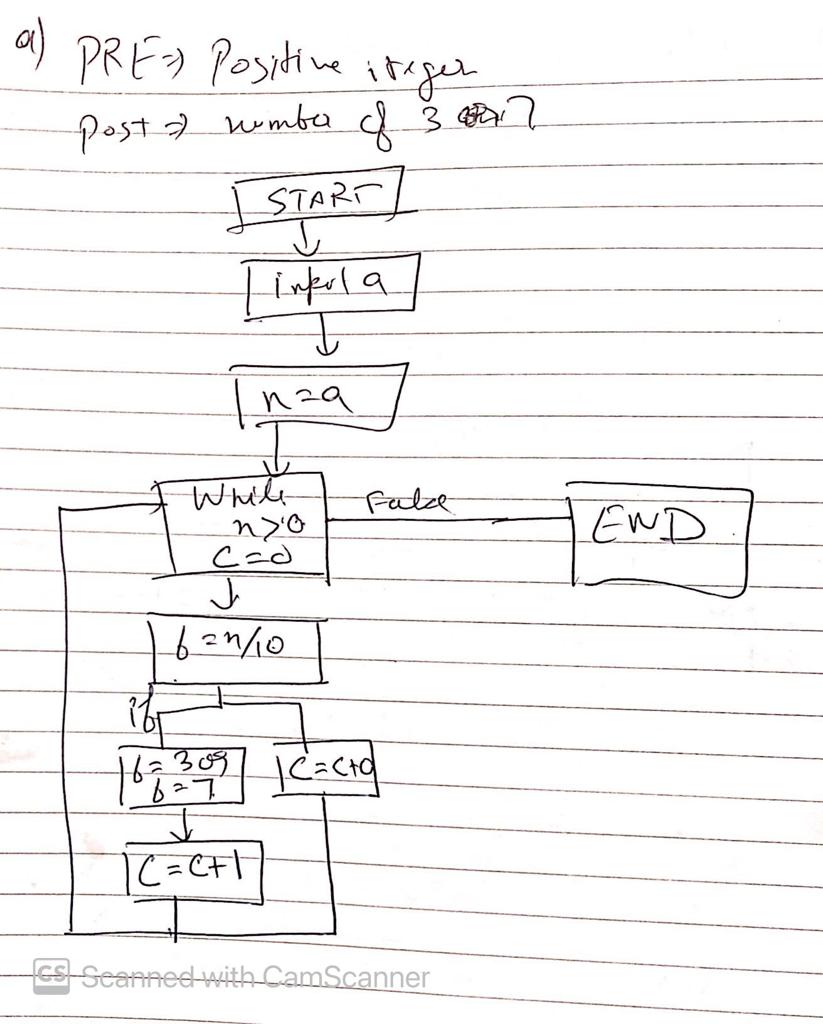 a) PRE => Positive iteger
Post => number of 3 7
START
input a
n=a
While
n>0
C=0
False
END
b=n/10
if
b=3 or
b=7
C=C+0
C=C+1
CS Scanned with CamScanner